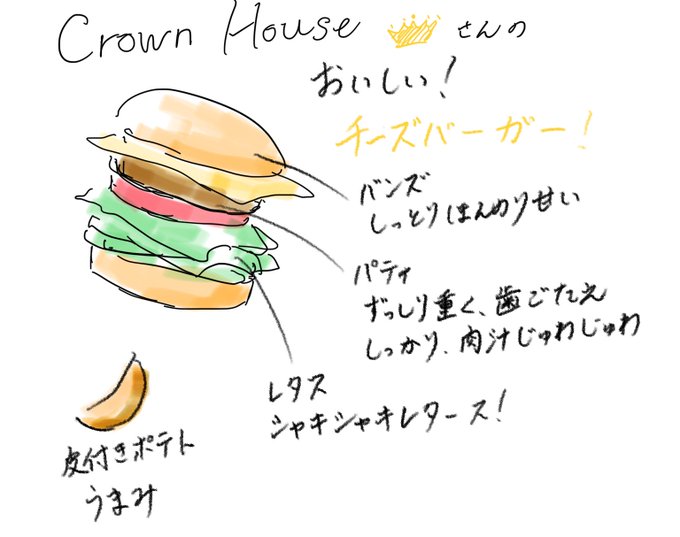 Crown House さんの
おいしい!
チーズバーガー!
バンズ
しっとりほんのり甘い
パティ
ずっしり重く、歯ごたえ
しっかり、肉汁じゅわじゅわ
レタス
シャキシャキレタース!
皮付きポテト
うまみ